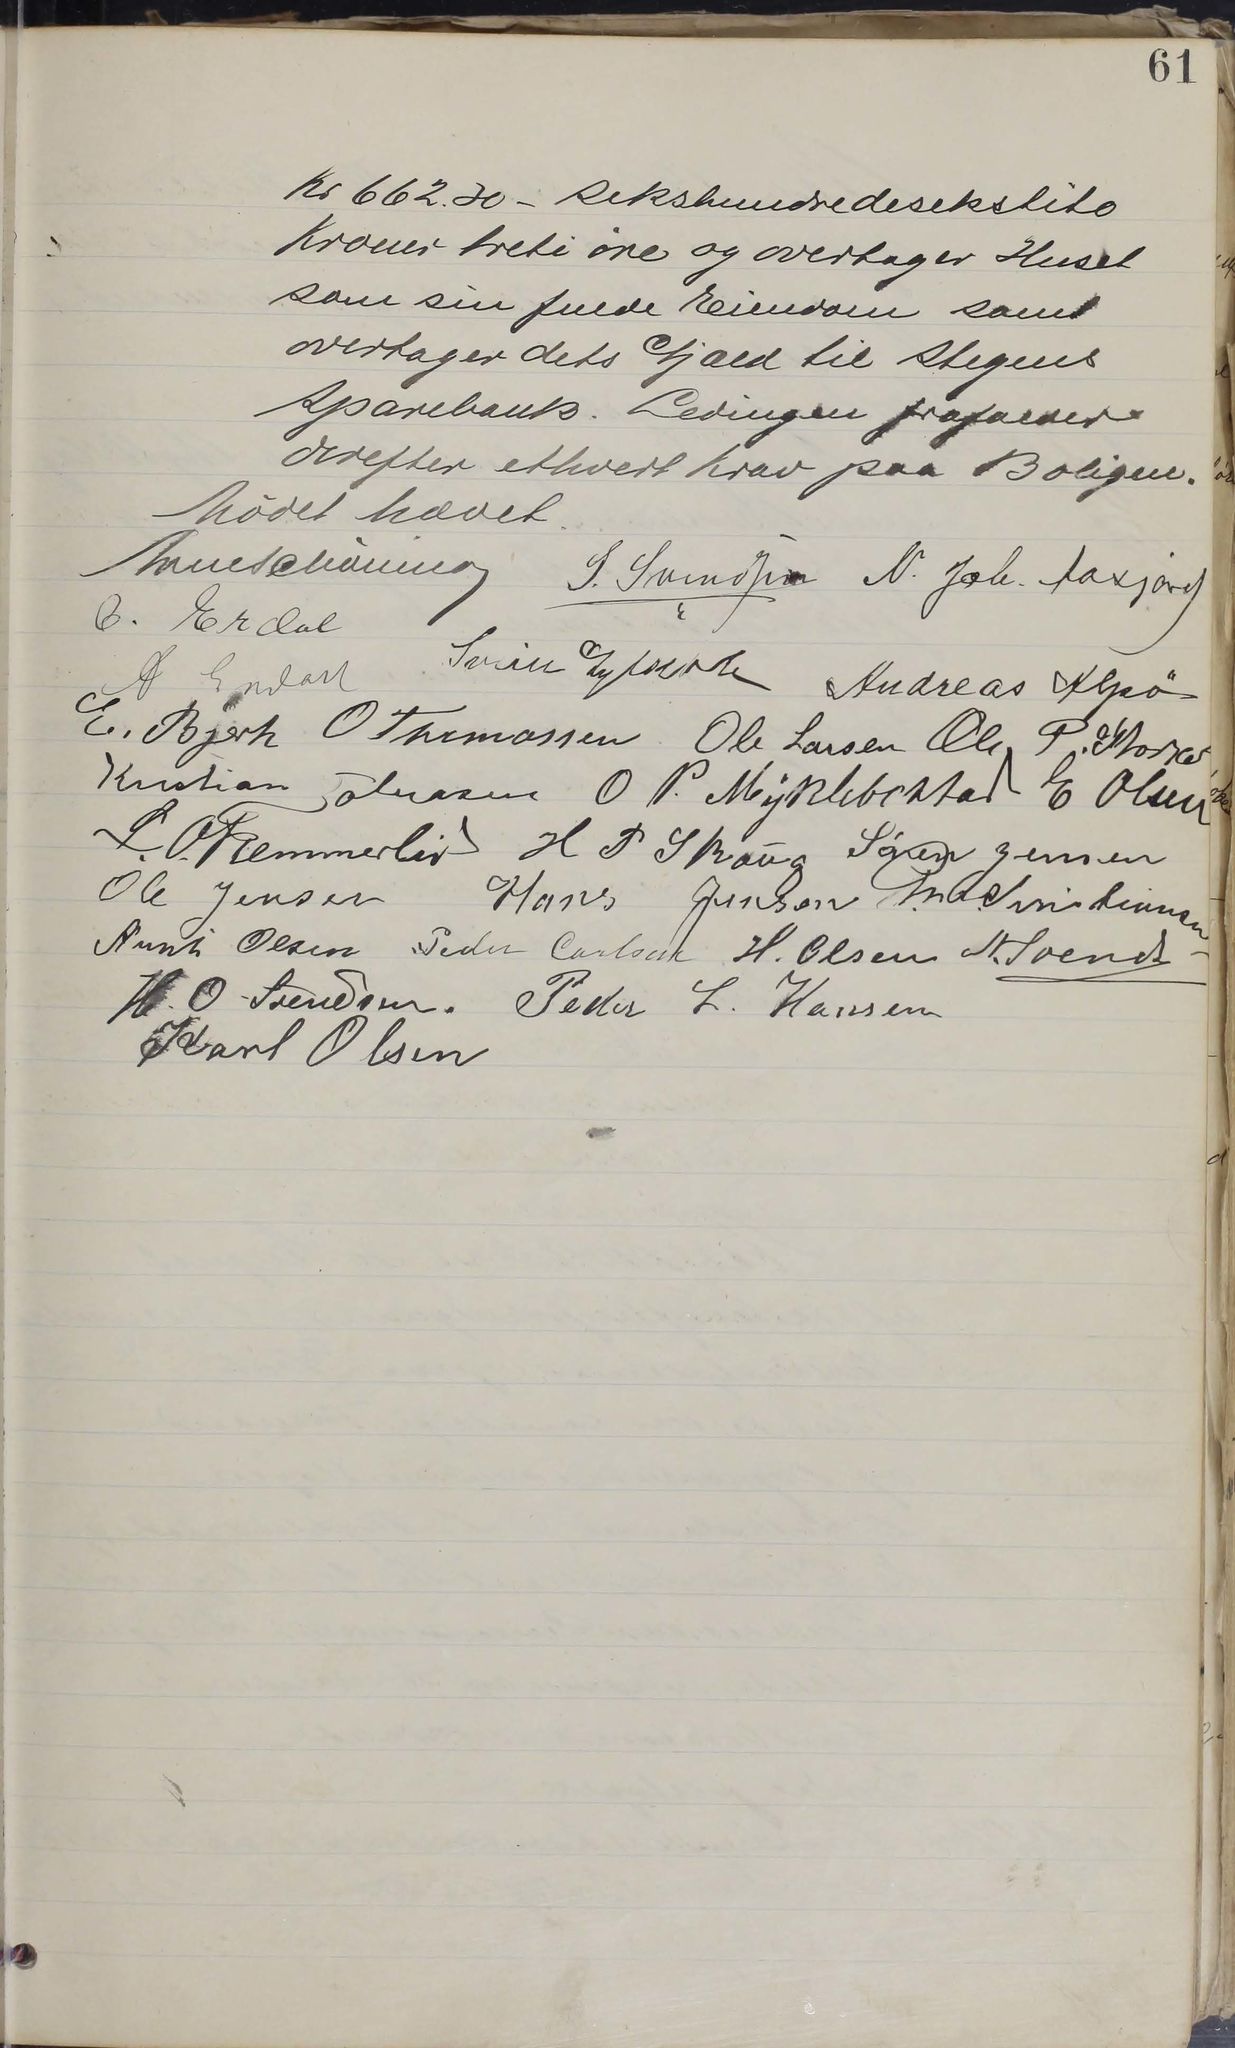 61
Kr 662.30 - sekshundredesekstito
Kroner treti öre og overtager Huset
som sin fulde Eiendom samt
overtager dets Gjæld til Stegens
Sparebank. Ledingen frafalder
derefter ethvert krav paa Boligen.
Mödet hævet.
S. Svendsen N. Joh.
E. Erdal
A Svein Andreas Alpö
E. Bjerk O Thomassen Ole Larsen Ole P.
Kristian Johnasen O P. Myklebostad E Olsen
L. O. Remmerlid H P Skaug Sören Jensen
Ole Jensen Hans Jensen
Olsen Peder Carlsen H. Olsen N. Svends-
H. O Svendsen. Peder L. Hansen
Karl Olsen